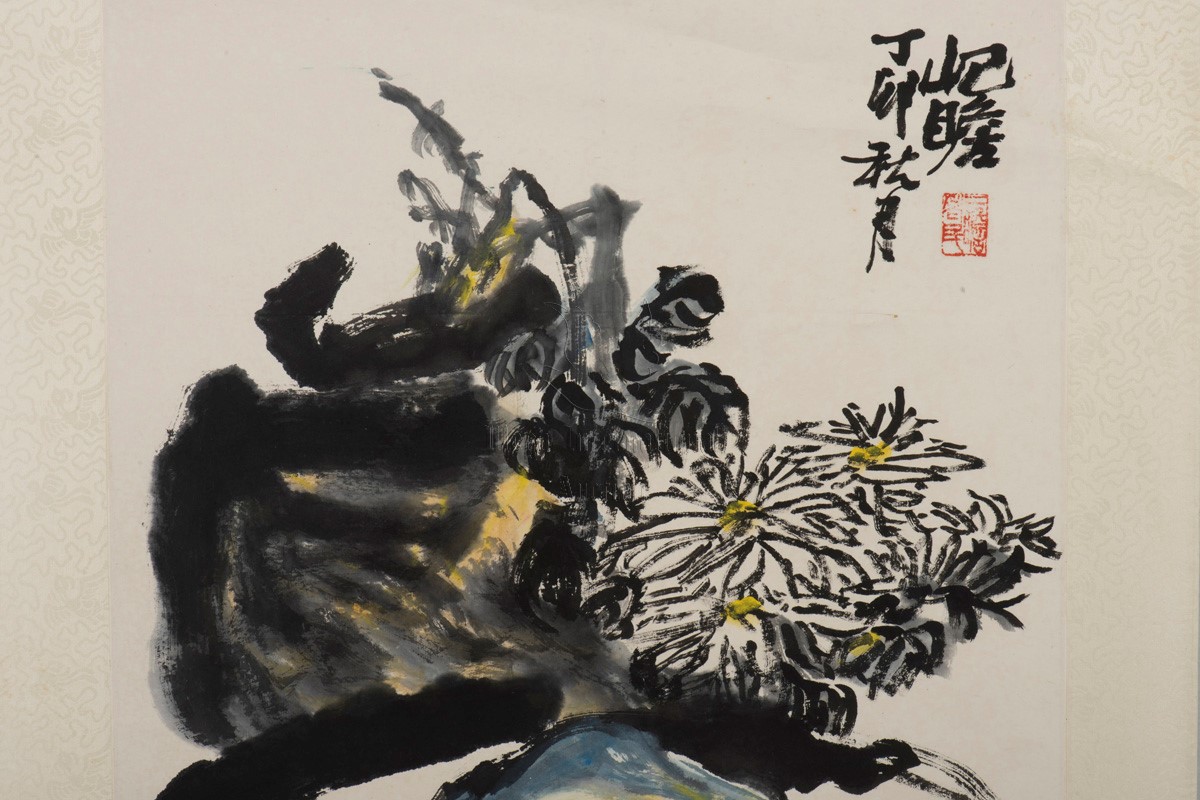 屺瞻
丁卯秋月